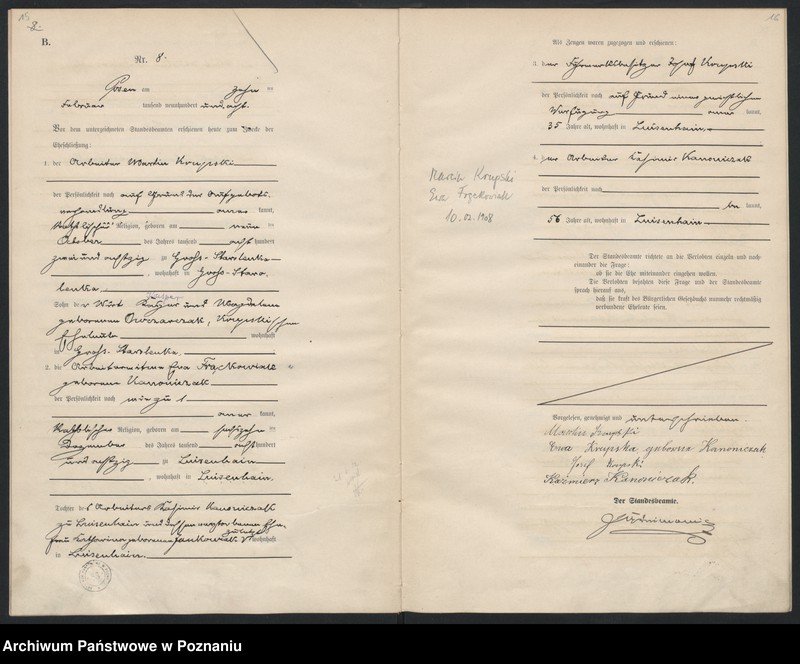 B.
Nr. 8.
Posen am zehn ten
Februar tausend neunhundert und acht.
Vor dem unterzeichneten Standesbeamten erschienen heute zum Zwecke der
Eheschließung:
1. der Arbeiter Martin Krupski
der Persönlichkeit nach auf Grund der Aufgebots-
verhandlung aner kannt,
katholischer Religion, geboren am neun ten
Oktober des Jahres tausend acht hundert
zwei und achtzig zu Groß-Starolenka
, wohnhaft in Groß-Staro-
lenka
Sohn der Wirt und Magdalena
geborenen Owczarczak, Krupskischen
Eheleute wohnhaft
in Groß-Starolenka.
2. die Arbeiterwitwe Eva Frąckowiak
geborene Kanoniczak
der Persönlichkeit nach wie zu 1
aner kannt,
katholischer Religion, geboren am
Dezember des Jahres tausend acht hundert
und achtzig zu Luisenhain
, wohnhaft in Luisenhain.
Tochter des Arbeiters Kasimir Kanoniczak
zu Luisenhain und dessen verstorbenen Ehe-
frau Katharina geborenen Jankowiak zuletzt wohnhaft
in Luisenhain.
16
Als Zeugen waren zugezogen und erschienen:
3. der Josef Krupski
der Persönlichkeit nach auf Grund einer gerichtlichen
Verfügung aner kannt,
35 Jahre alt, wohnhaft in Luisenhain
4. der Arbeiter Kasimir Kanoniczak
der Persönlichkeit nach
be kannt,
56 Jahre alt, wohnhaft in Luisenhain
Marcin Krupski
Ewa Frąckowiak
10.02.1908
Der Standesbeamte richtete an die Verlobten einzeln und nach-
einander die Frage:
ob sie die Ehe miteinander eingehen wollen.
Die Verlobten bejahten diese Frage und der Standesbeamte
sprach hierauf aus,
daß sie kraft des Bürgerlichen Gesetzbuchs nunmehr rechtmäßig
verbundene Eheleute seien.
Vorgelesen, genehmigt und unterschrieben.
Martin Krupski
Ewa Krupska geborene Kanoniczak
Josef Krupski
Kaźmierz Kanoniczak.
Der Standesbeamte.
Archiwum Państwowe w Poznaniu